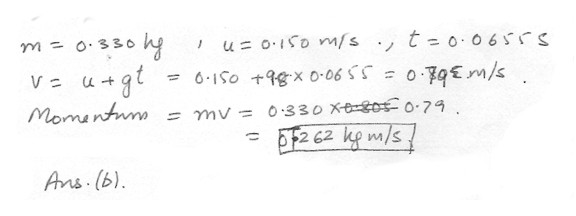 m = 0.330 kg , u = 0.150 m/s ., t = 0.0655 s
v = u + gt = 0.150 + 98 × 0.0655 = 0.79 m/s .
Momentum = mv = 0.330 × 0.805 0.79 .
= 0.262 kg m/s
Ans. (b).